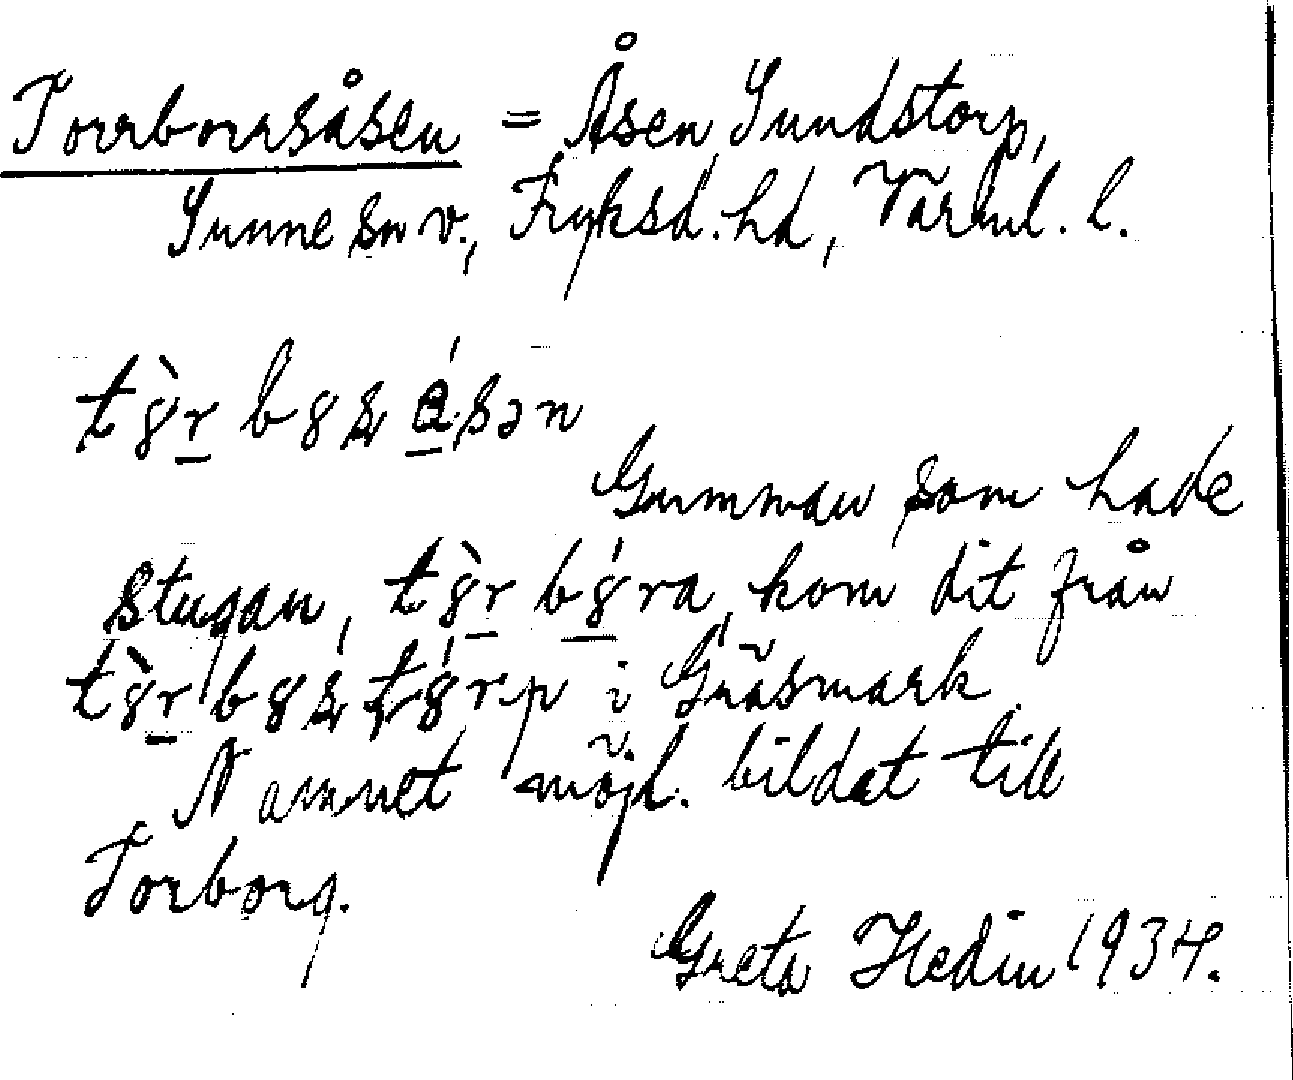 Torrborrsåsen = Åsen, Sundstorp,
Sunne sn v., Fryksd. hd, Värml. l.
tȣ̀r bȣʂ ɑ́sən
Gumman som hade
stugan, tȣ̀r bȣ́ra, kom dit från
tȣ̀r bȣʂ tȣ́rp i Gräsmark.
Namnet möjl. bildat till
Torborg.
Greta Hedin 1934.